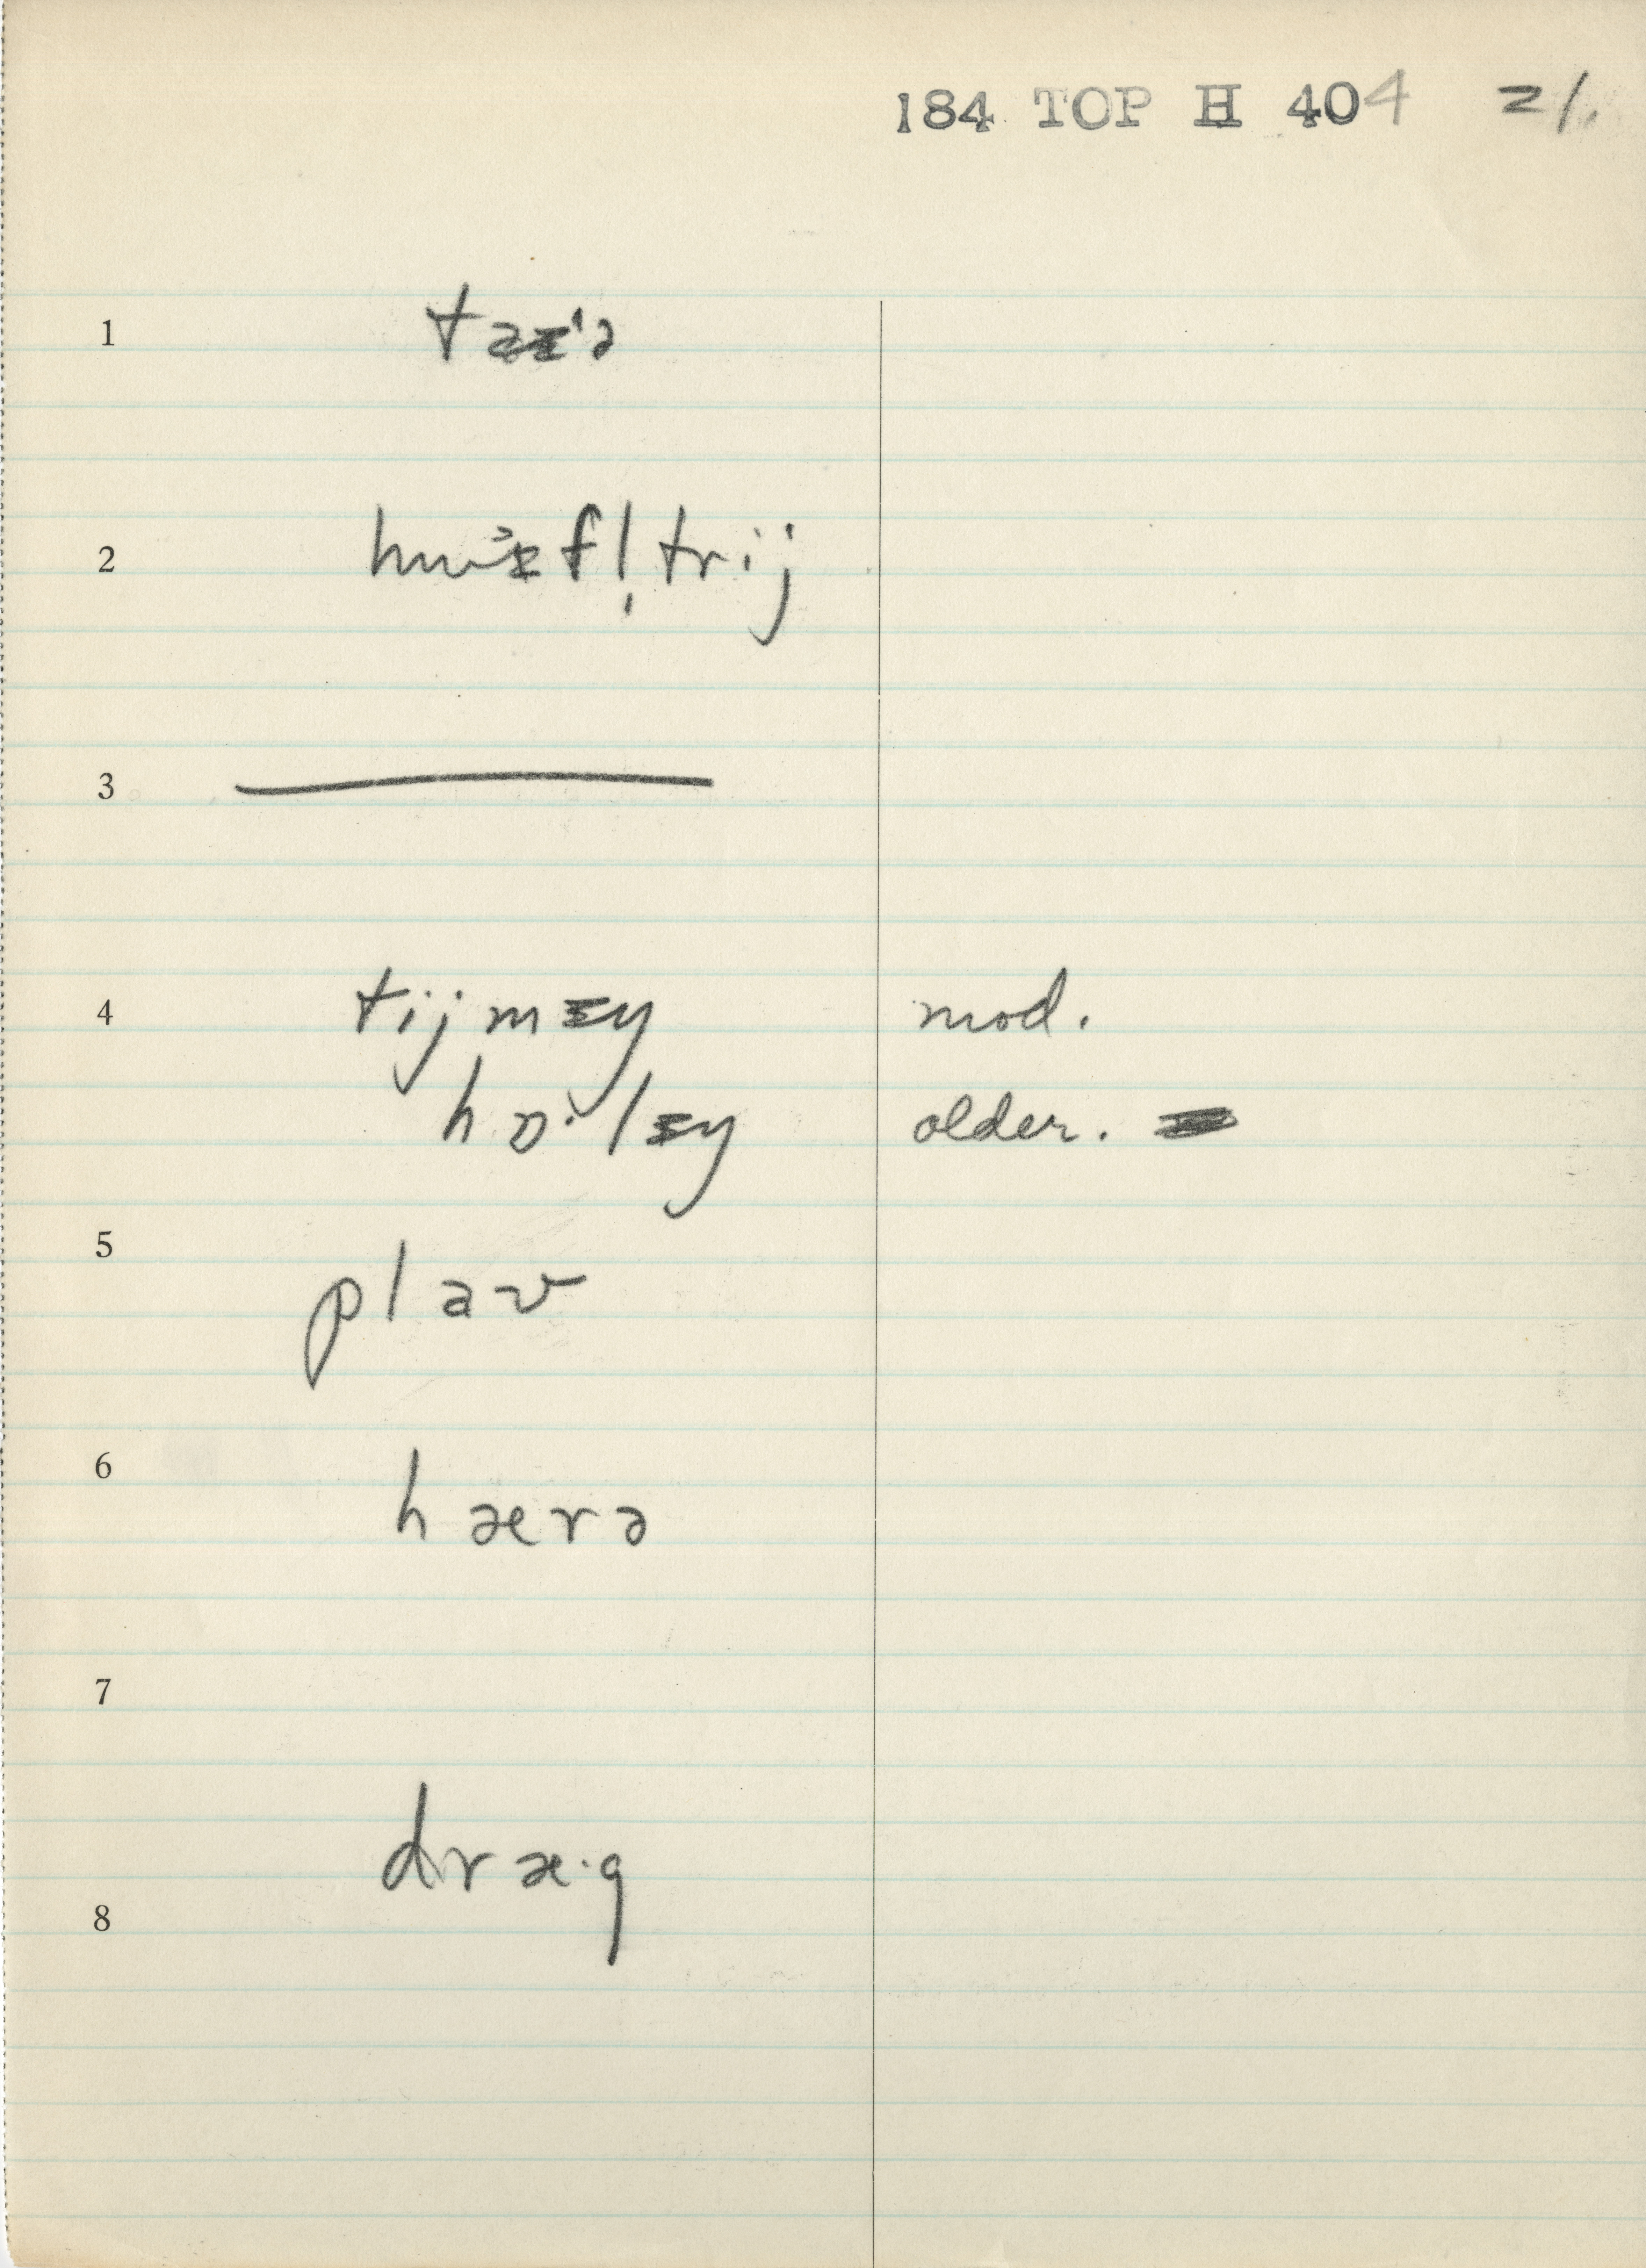 184 TOP H 404 21.
1
2 hwɪfl̩trij
3
4 tijmɪy mod.
hɒ·lɪy older.
5 plav
6 hærə
7
dræ·g
8